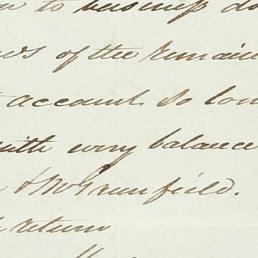 to business do
of the remain
account so lon
with every balance
Greenfield.
return